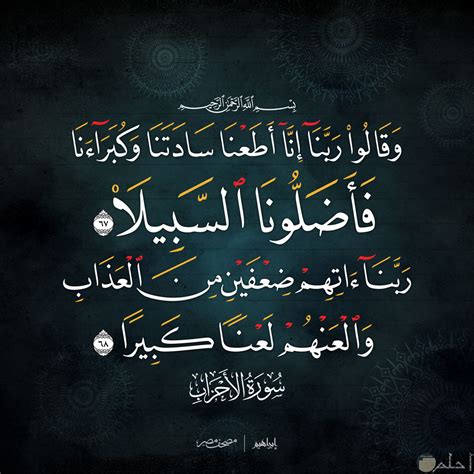 بِسْمِ ٱللَّهِ ٱلرَّحْمَٰنِ ٱلرَّحِيمِ
وَقَالُوا۟ رَبَّنَآ إِنَّآ أَطَعْنَا سَادَتَنَا وَكُبَرَآءَنَا
فَأَضَلُّونَا ٱلسَّبِيلَا۠ ٦٧
رَبَّنَآ ءَاتِهِمْ ضِعْفَيْنِ مِنَ ٱلْعَذَابِ
وَٱلْعَنْهُمْ لَعْنًا كَبِيرًا ٦٨
سُورَةُ الأَحْزَابِ
إبراهيم | مصحف مصر
أحلم